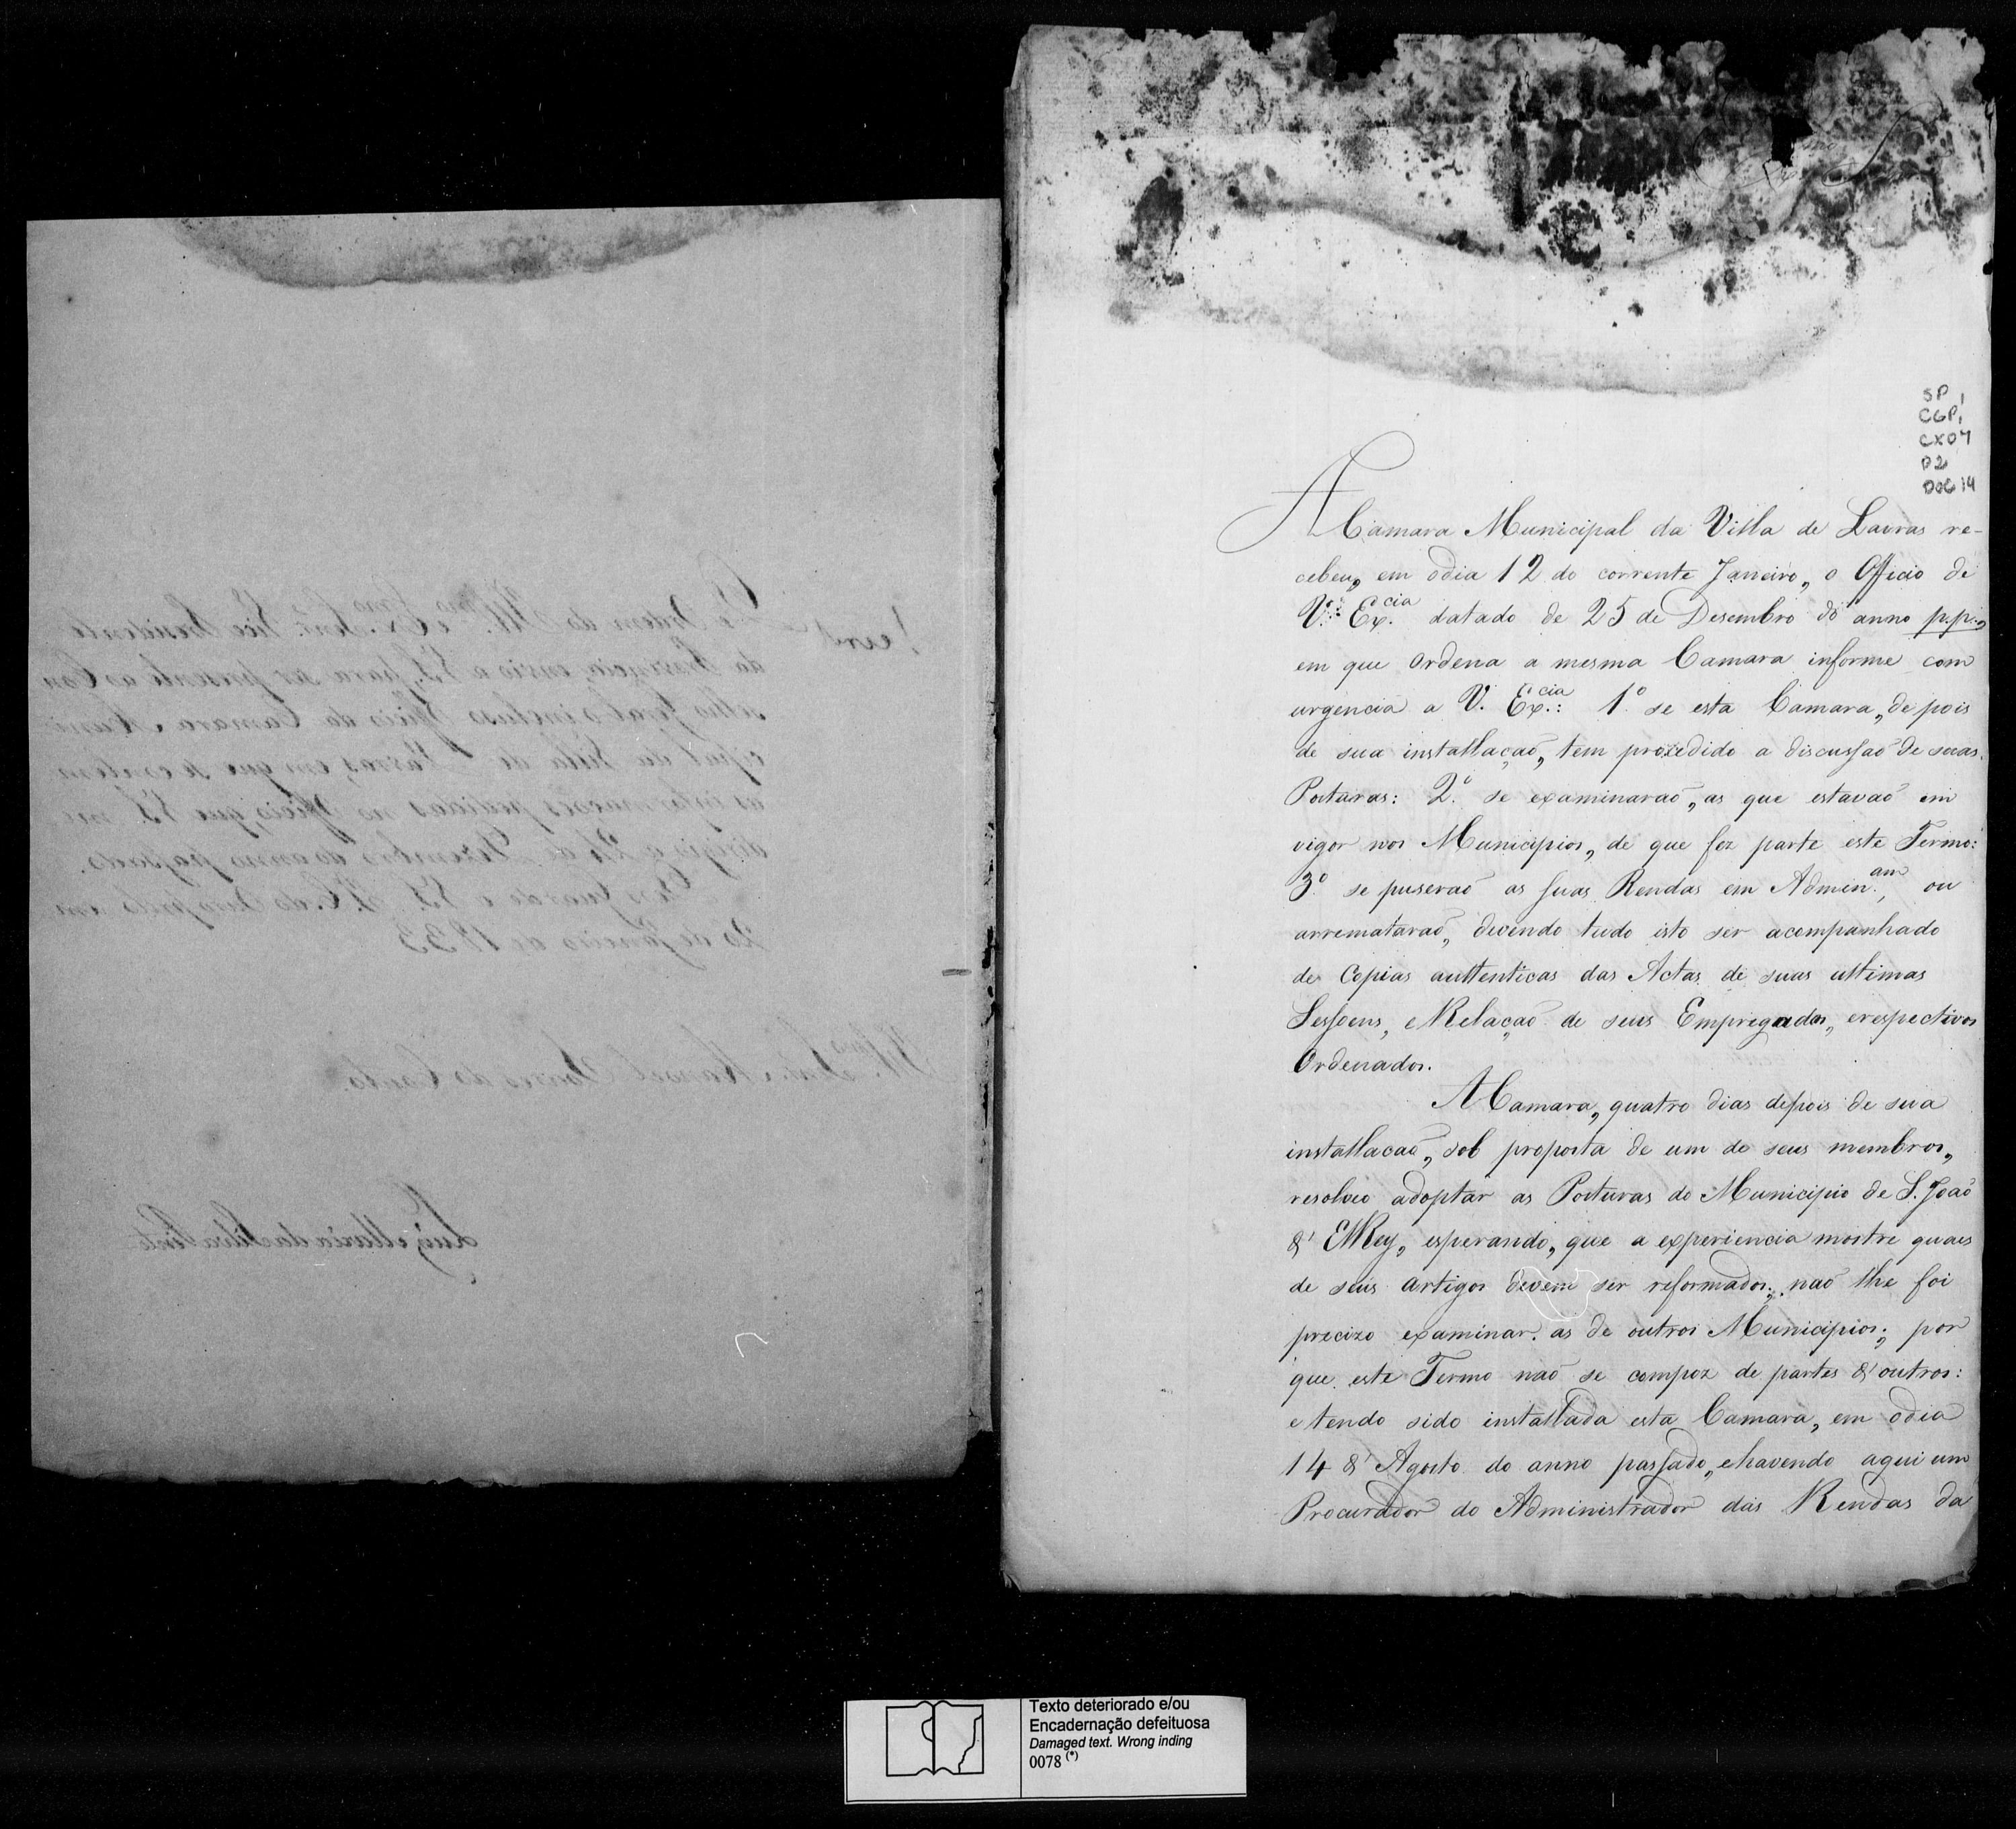 SP
CGP
CX 07
P2
DOC 14
A Camara Municipal da Villa de Lavras re-
cebeu, em odia 12 do corrente Janeiro, o Officio de
V. Ex.cia datado de 25 de Desembro do anno p.p.,
em que Ordena a mesma Camara informe com
urgencia a V. Ex.cia: 1º se esta Camara, de pois
de sua installação, tem prosedido a discussaõ de suas
Posturas: 2º se examinaraõ, as que estavaõ em
vigor nos Municipios, de que fez parte este Termo:
3º se puseraõ as suas Rendas em Admin.am, ou
arremataraõ, devendo tudo isto ser acompanhado
de Copias authenticas das Actas de suas ultimas
Sessoens, e Relaçaõ de seus Empregados, erespectivos
Ordenados.
A Camara, quatro dias depois de sua
installacaõ, sob proposta de um de seus membros,
resolveo adoptar as Posturas do Municipio de S. Joaõ
d' ElRey, esperando, que a experiencia mostre quaes
de seus artigos devem ser reformados; naõ lhe foi
precizo examinar as de outros Municipios; por
que este Termo naõ se compoz de partes d'outros:
e tendo sido installada esta Camara, em odia
14 d' Agosto do anno passado, ehavendo aqui um
Procurador do Administrador das Rendas da
De Ordem do Ill.mo e Ex.mo Senr. Vice Presidente
da Provincia, envio a V.S. para ser presente ao Con
selho Geral o incluso Officio da Camara Muni
cipal da Villa de Lavras, em que se contem
as informações pedidas no Officio, que V.S. me
dirigio a 24 de Dezembro do anno passado.
Deos Guarde a V.S. em
20 de Janeiro de 1833
Ill.mo Senr. Manoel Soares do Couto
Luiz Maria da Silva Pinto
Texto deteriorado e/ou
Encadernação defeituosa
Damaged text. Wrong inding
0078 (*)